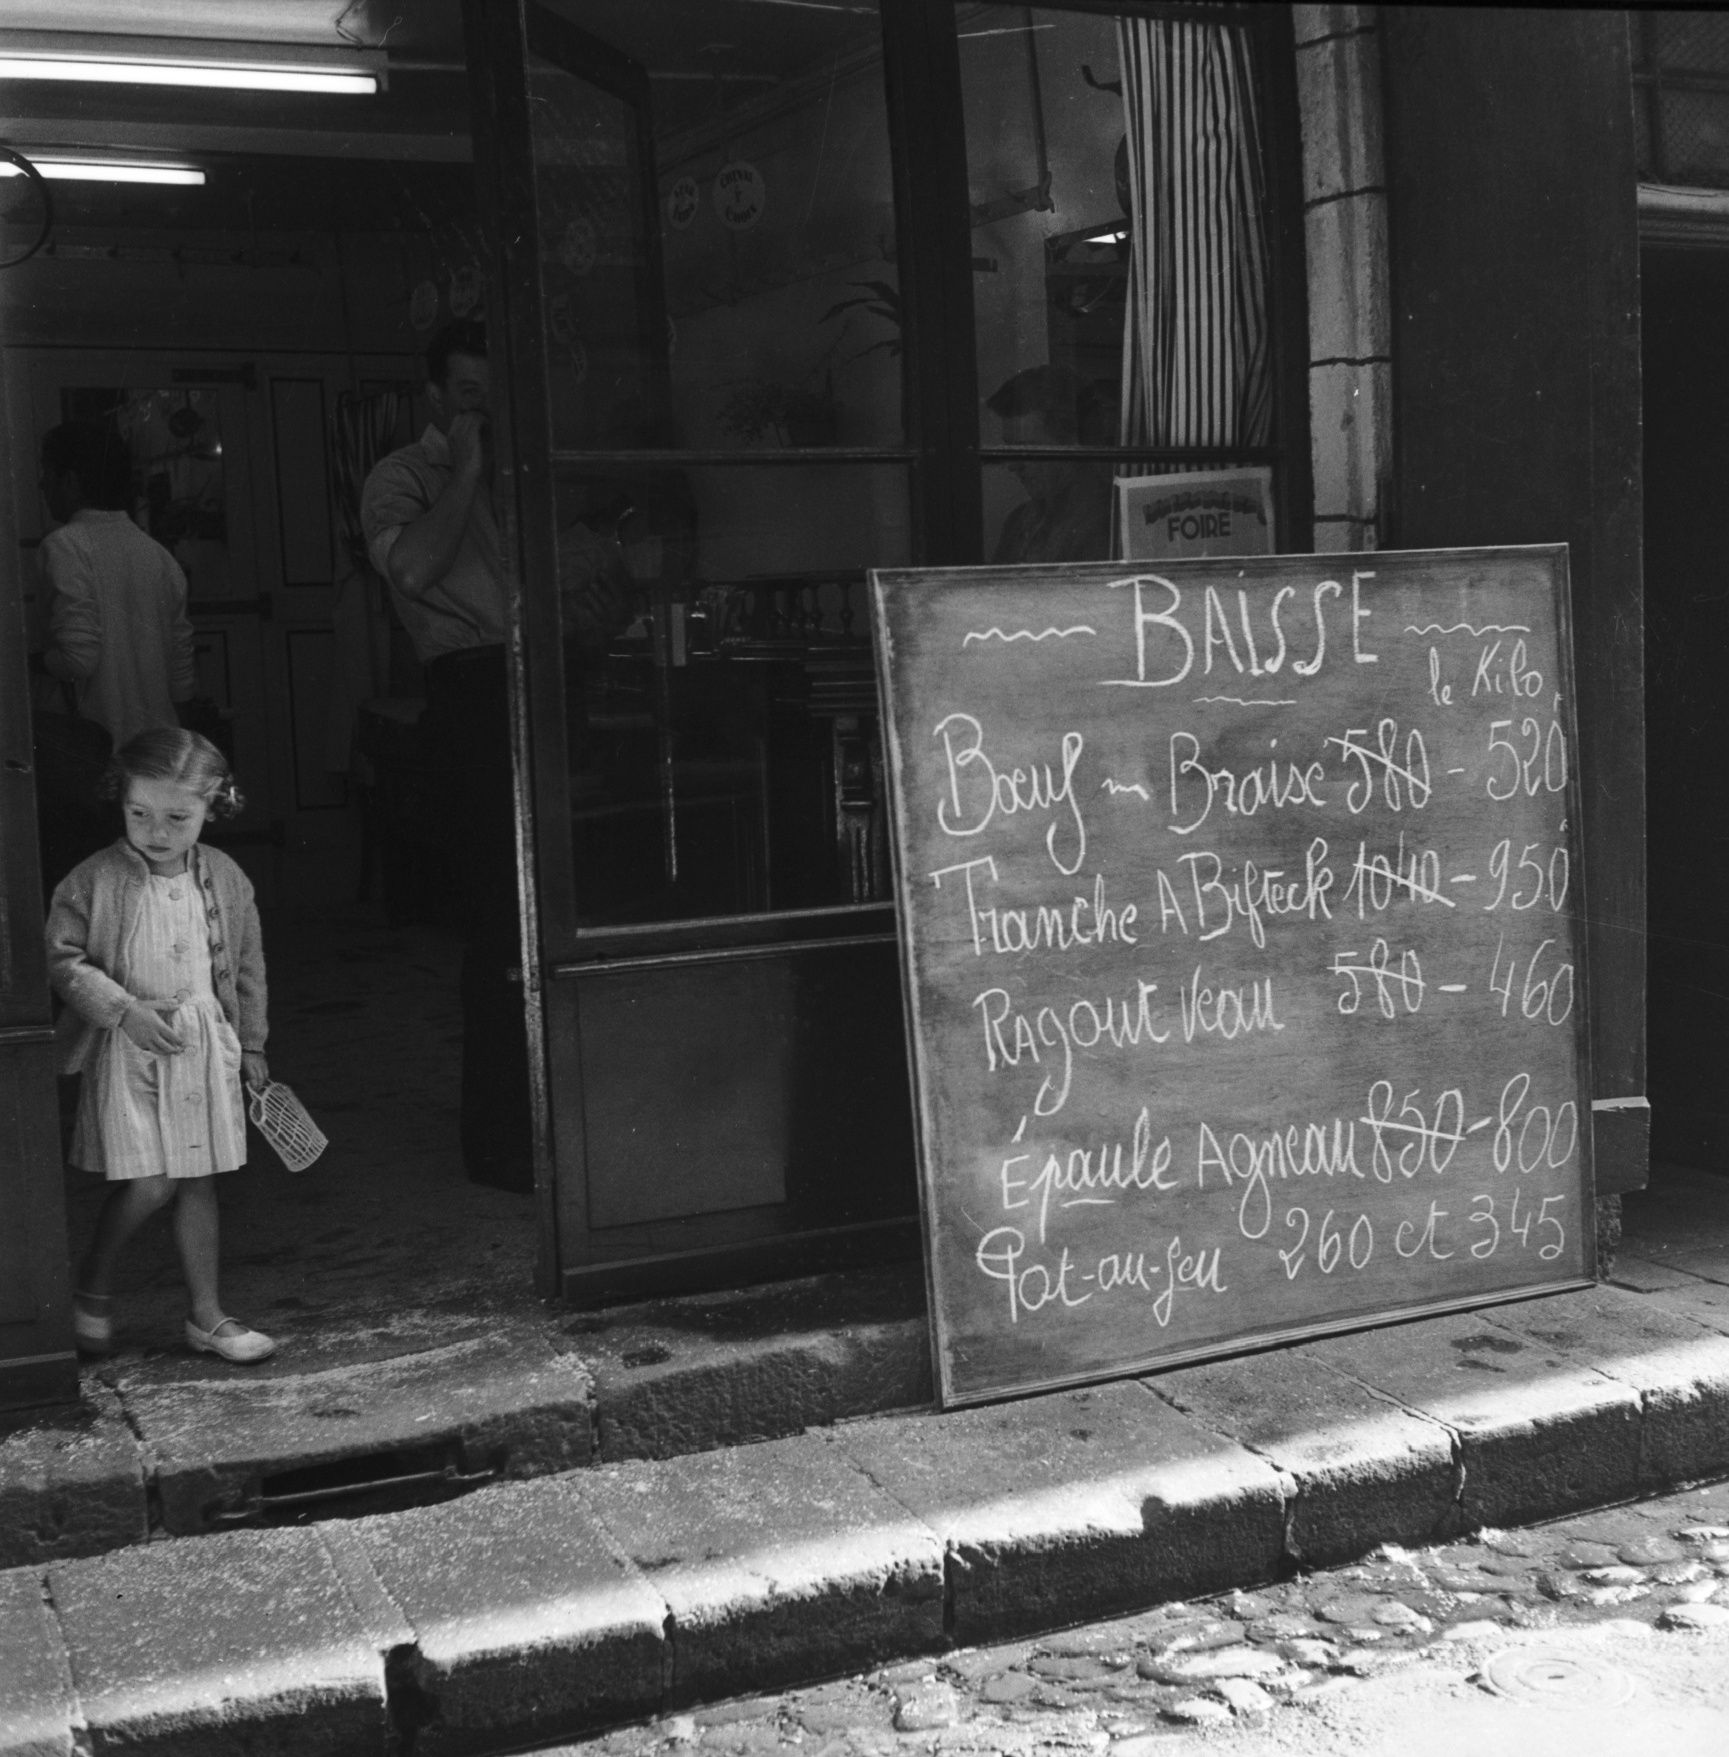 FOIRE
BAISSE
le Kilo
Bœuf Braisé 580 - 520
Tranche A Bifteck 1040 - 950
Ragout Veau 580 - 460
Épaule Agneau 850 - 800
Pot-au-feu 260 et 345